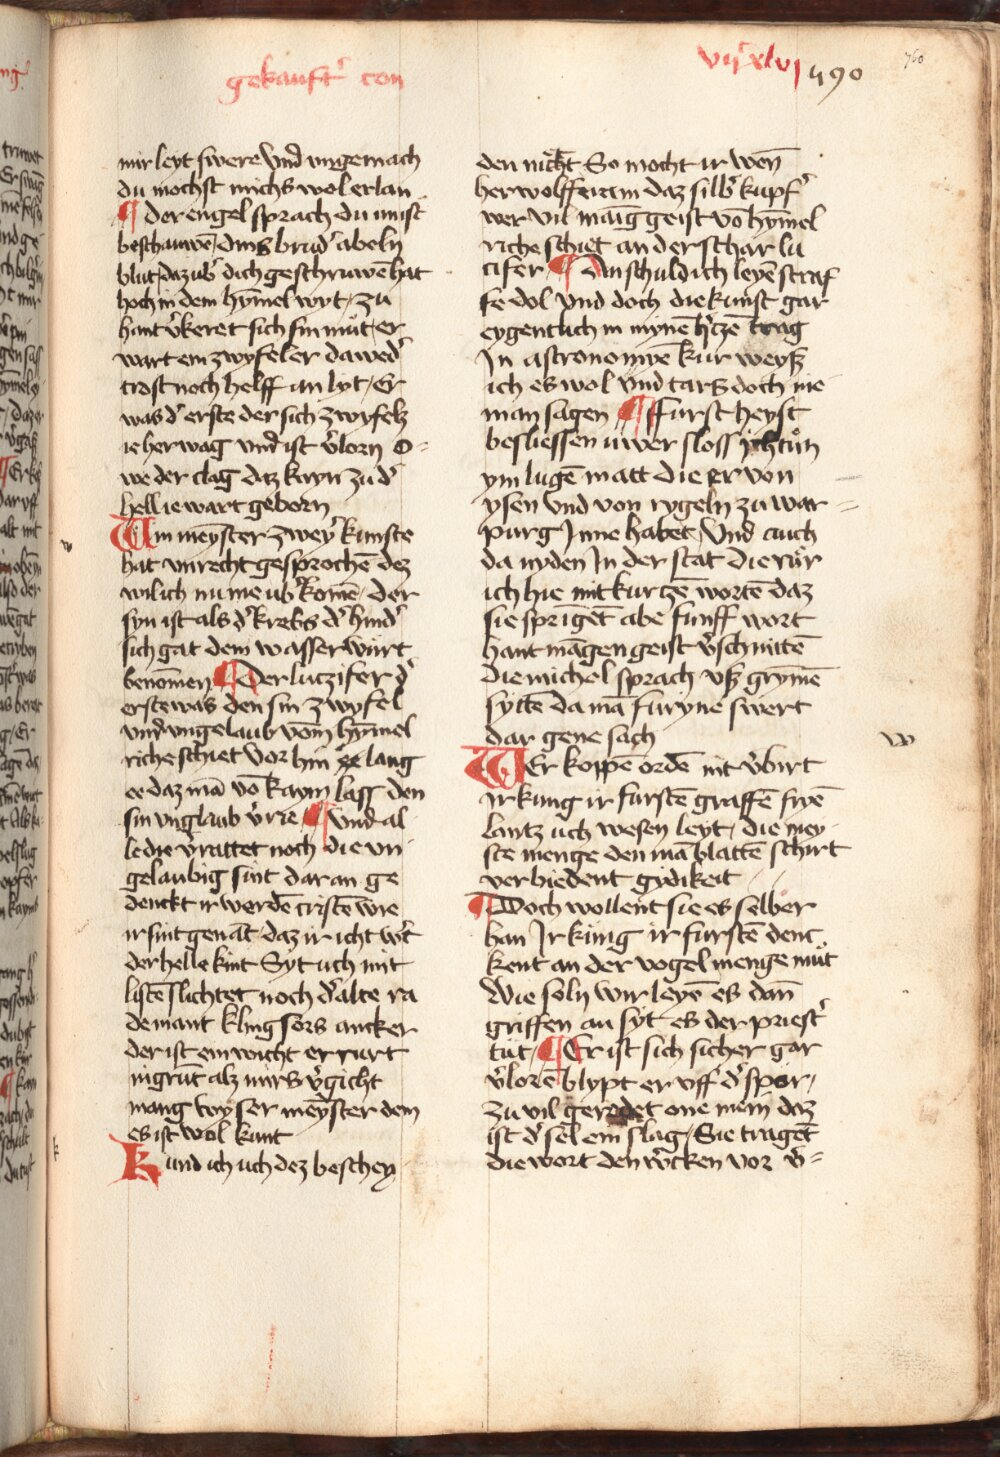 gekaufter ton
vijᶜ xlvj 490
760
mir leyt swere Vnd vngemach
du mochst michs wol erlan
¶ der engel sprach du must
beschauwē dins brud' abeln
blut daz ub' dich geschruwē hat
hoch in dem hȳmel wyt / zu
hant v'keret sich sin mut / er
wart ein zwyfeler da wed'
trost noch helff an lyt / Er
was d' erste der sich zwyfelz
ie her wag vnd ist v'lorn O-
we der clag daz kayn zu d'
hell ie wart geborn
Ein meyster zwey' kunste
hat vnrecht gesprochē dez
wil ich nu me ub'komē / der
syn ist als d' krebs d' hind'
sich gat dem wasser wurt
benomen ¶ Der lutzifer d'
erste was den sin zwyfel
vnd vngelaub vom hȳmel
riche schiet vor hin lang
ee daz mā vō kaym lass den
sin vnglaub v'rie ¶ Vnd al
le die v'rattet noch die vn
gelaubig sint dar an ge
denckt ir werdē cristē wie
ir sint genāt daz ir icht w't
der helle kint Syt uch mit
listē slichtet noch d' alte ra
demant klingsors ancker
der ist ein wicht er rurt
nigrūt alz mirs v'gicht
mang wyser meyster dem
es ist wol kunt
Kund ich uch dez beschey
den nicht So mocht ir wēn
her wolffeim daz silb' kupf'
wer vil mānig geist vō hȳmel
riche schiet an der schar lu
cifer ¶ An schuld ich leyē straf
fe dol Vnd doch die kunst gar
eygentlich in mynē h'tzē trag
In astronomyē kur weysz
ich es wol Vnd tars doch nie
man sagen ¶ Furst heyst
besliessen uwer sloss ich tun
ym lugē matt die er von
ysen Vnd von rygeln zu war
purg Inne habet / Vnd auch
da nyden In der stat Die rur
ich hie mit kurtzē wortē daz
sie springēt abe funff wort
hant māgen geist v'schnittē
die michel sprach vsz grymē
syttē da mā furyne swert
dar gene sach
Wer koppē ordē mit v'birt
Ir kung ir furstē graffē fryē
lantz uch wesen leyt / die mey
ste menge den mā blattē schirt
verbiedent gidikeit
¶ Doch wollent sie es selber
han Ir kung ir furstē denc
kent an der vogel menge mut
Wie soln wir leyē es dan
griffen an syt es der priest'
tut / ¶ Er ist sich sicher gar
v'lorē blypt er vff d' spor /
zu vil geredet one mein daz
ist d' sel ein slag / Sie tragēt
die wort den w'cken vor v'=